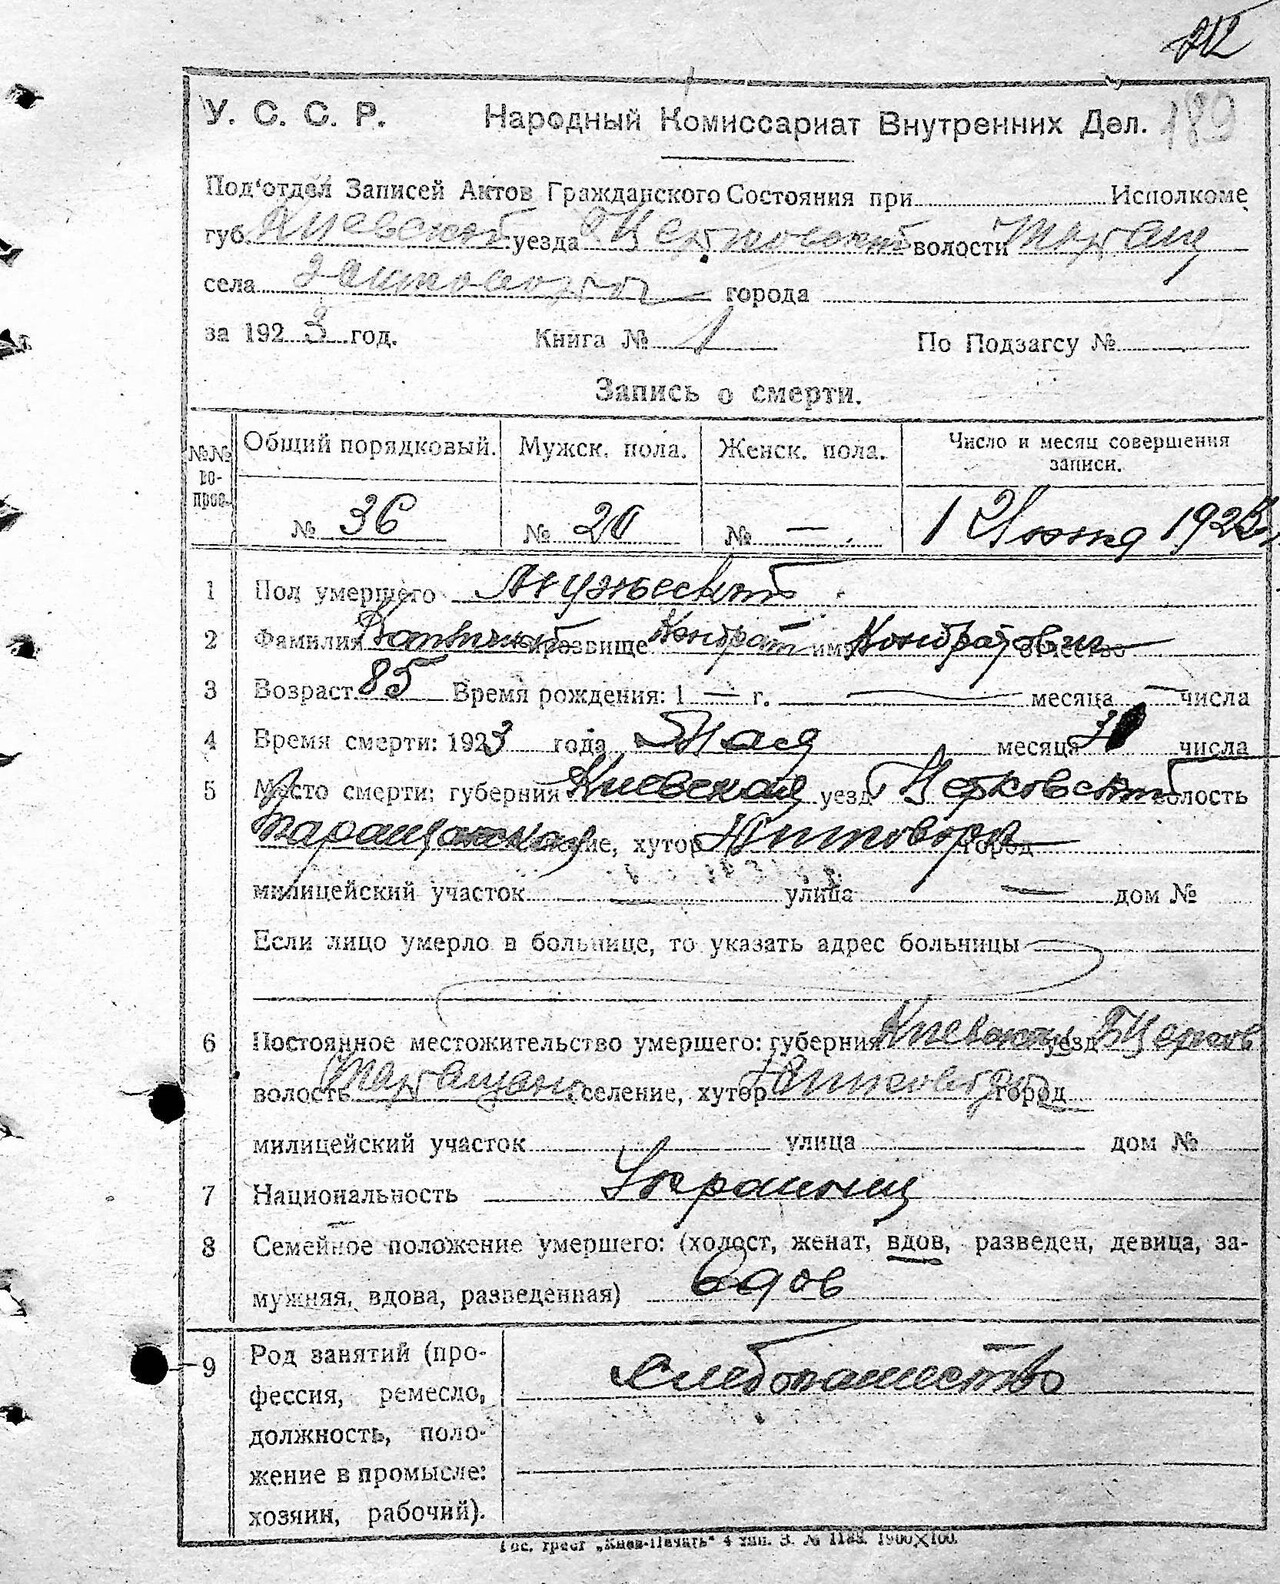 212
189
У. С. С. Р. Народный Комиссариат Внутренних Дел.
Под'отдел Записей Актов Гражданского Состояния при Исполкоме
губ. Киевской уезда Б Церковский волости Таращ
села города
за 1923 год. Книга № 1 По Подзагсу №
Запись о смерти.
№№ вопрос. Общий порядковый. Мужск. пола. Женск. пола. Число и месяц совершения записи.
№ 36 № 20 № — 1 Июня 1923 г.
1 Пол умершего Мужеский
2 Фамилия прозвище Кондрат имя Кондратович отчество
3 Возраст 85 Время рождения: 1 — г. — месяца — числа
4 Время смерти: 1923 года Мая месяца числа
5 Место смерти: губерния Киевская уезд Б Церковский волость
Таращанская селение, хутор город
милицейский участок — улица — дом №
Если лицо умерло в больнице, то указать адрес больницы —
6 Постоянное местожительство умершего: губерния Киевская уезд Б Церков
волость Таращанск селение, хутор город
милицейский участок — улица — дом №
7 Национальность Украинец
8 Семейное положение умершего: (холост, женат, вдов, разведен, девица, за-
мужняя, вдова, разведенная) вдов
9 Род занятий (про- Хлебопашество
фессия, ремесло,
должность, поло-
жение в промысле:
хозяин, рабочий).
Гос. трест „Киев-Печать" 4 тип. З. № 1183. 1900×100.